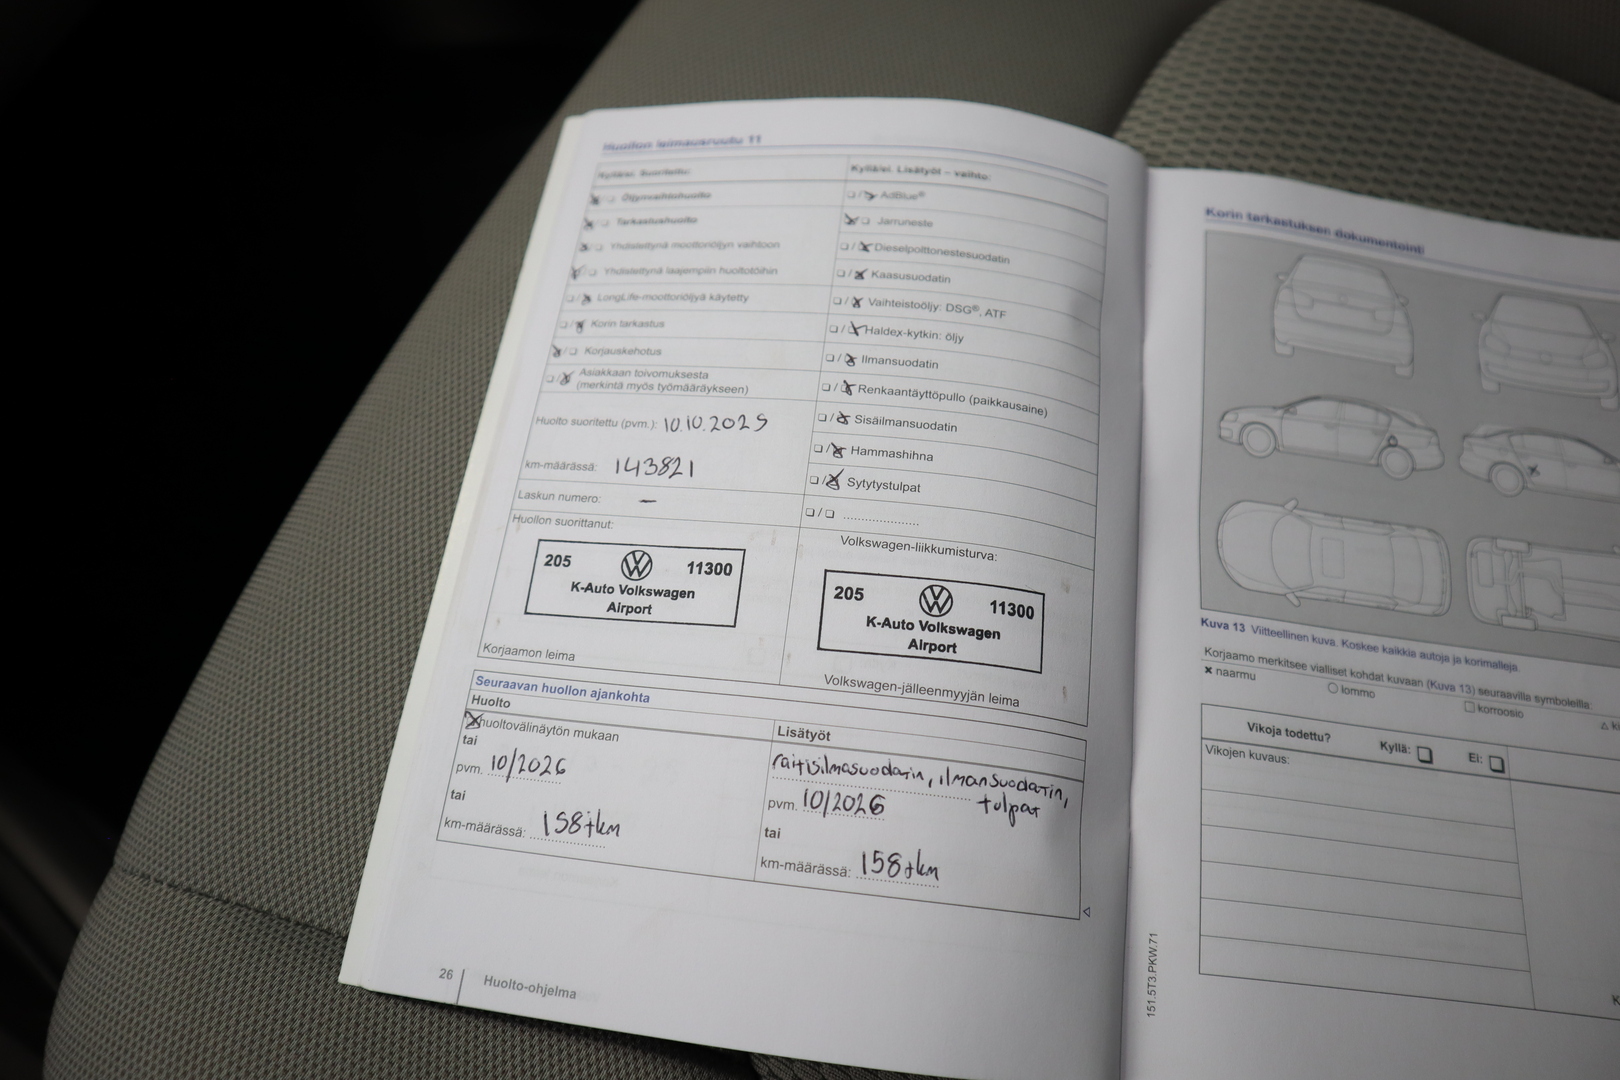 Huollon leimausruutu 11
Kyllä/ei. Suoritettu:
Öljynvaihtohuolto
Tarkastushuolto
Yhdistettynä moottoriöljyn vaihtoon
Yhdistettynä laajempiin huoltotöihin
LongLife-moottoriöljyä käytetty
Korin tarkastus
Korjauskehotus
Asiakkaan toivomuksesta
(merkintä myös työmääräykseen)
Huolto suoritettu (pvm.): 10.10.2025
km-määrässä: 143821
Laskun numero: –
Huollon suorittanut:
205 11300
K-Auto Volkswagen
Airport
Korjaamon leima
Kyllä/ei. Lisätyöt – vaihto:
AdBlue®
Jarruneste
Dieselpolttonestesuodatin
Kaasusuodatin
Vaihteistoöljy: DSG®, ATF
Haldex-kytkin: öljy
Ilmansuodatin
Renkaantäyttöpullo (paikkausaine)
Sisäilmansuodatin
Hammashihna
Sytytystulpat
Volkswagen-liikkumisturva:
205 11300
K-Auto Volkswagen
Airport
Volkswagen-jälleenmyyjän leima
Seuraavan huollon ajankohta
Huolto
huoltovälinäytön mukaan
tai
pvm. 10/2026
tai
km-määrässä: 158tkm
Lisätyöt
raitisilmasuodatin, ilmansuodatin,
tulpat
pvm. 10/2026
tai
km-määrässä: 158tkm
26 Huolto-ohjelma
Korin tarkastuksen dokumentointi
Kuva 13 Viitteellinen kuva. Koskee kaikkia autoja ja korimalleja.
Korjaamo merkitsee vialliset kohdat kuvaan (Kuva 13) seuraavilla symboleilla:
naarmu
lommo
korroosio
Vikoja todettu? Kyllä: Ei:
Vikojen kuvaus:
151.5T3.PKW.71